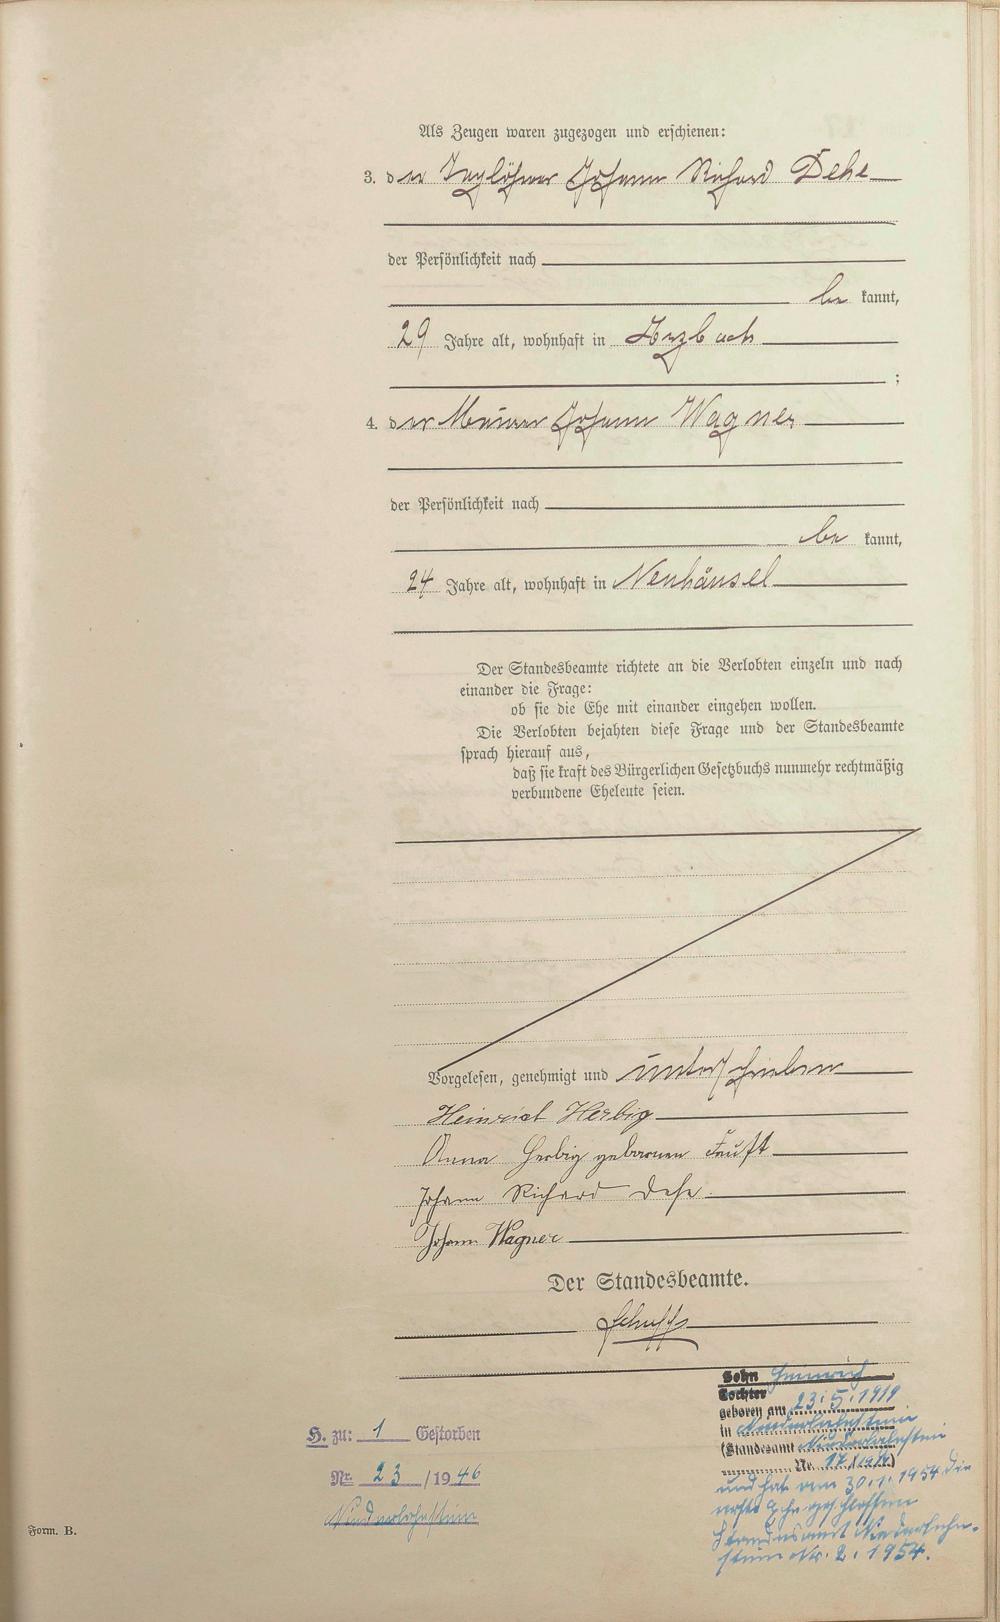 Als Zeugen waren zugezogen und erschienen:
3. der Taglöhner Johann Richard Dehe
der Persönlichkeit nach
be kannt,
29 Jahre alt, wohnhaft in Arzbach
;
4. der Maurer Johann Wagner
der Persönlichkeit nach
be kannt,
24 Jahre alt, wohnhaft in Neuhäusel
Der Standesbeamte richtete an die Verlobten einzeln und nach
einander die Frage:
ob sie die Ehe mit einander eingehen wollen.
Die Verlobten bejahten diese Frage und der Standesbeamte
sprach hierauf aus,
daß sie kraft des Bürgerlichen Gesetzbuchs nunmehr rechtmäßig
verbundene Eheleute seien.
Vorgelesen, genehmigt und unterschrieben
Heinrich Herbig
Anna Herbig geborenen Faust
Johann Richard Dehe.
Johann Wagner
Der Standesbeamte.
Sohn Heinrich
Tochter
geboren am 23.5.1919
in Niederlahnstein
(Standesamt Niederlahnstein
Nr. 17/1919)
und hat am 30.1.1954 die
erste Ehe geschlossen
Standesamt Niederlahn-
stein Nr. 2. 1954.
H. zu: 1 Gestorben
Nr. 23 / 1946
Niederlahnstein
Form. B.